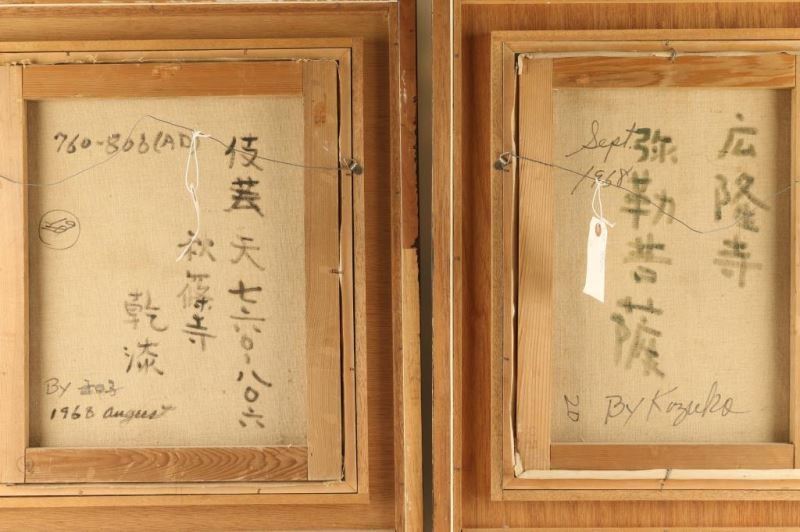 760-806(AD)
伎芸天 七六〇-八〇六
秋篠寺
乾漆
By
1968 August
広隆寺
弥勒菩薩
Sept.
1968
20
By Kazuko